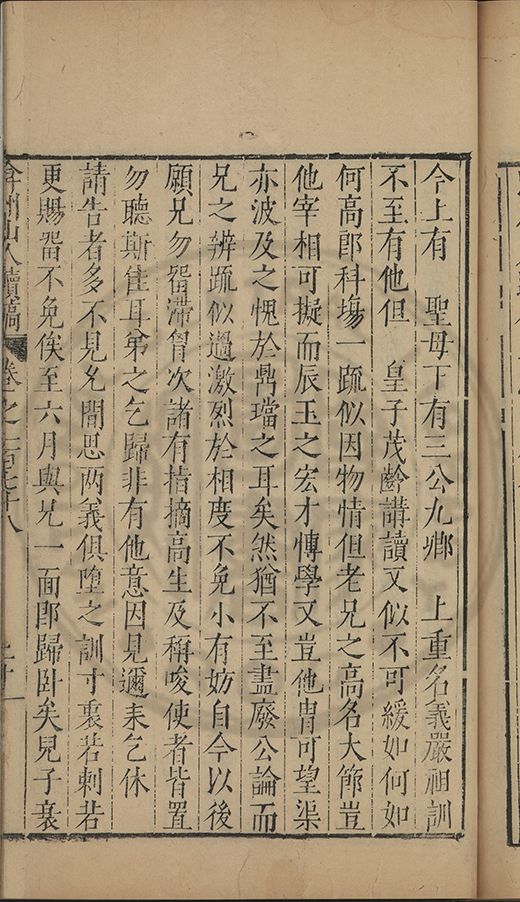 今上有　聖母下有三公九卿　上重名義嚴祖訓
不至有他但　皇子茂齡講讀又似不可緩如何如
何高郎科塲一疏似因物情但老兄之高名大節豈
他宰相可擬而辰玉之宏才愽學又豈他胄可望渠
亦波及之愧於鼎璫之耳矣然猶不至盡廢公論而
兄之辨疏似過激烈於相度不免小有妨自今以後
願兄勿畱滯胷次諸有指摘高生及稱唆使者皆置
勿聽斯隹耳弟之乞歸非有他意因見邇来乞休
請告者多不見允閒思两義俱墮之訓寸裏若刺若
更賜畱不免俟至六月與兄一靣即歸卧矣兒子衰
弇州山人續稿　卷之一百七十八